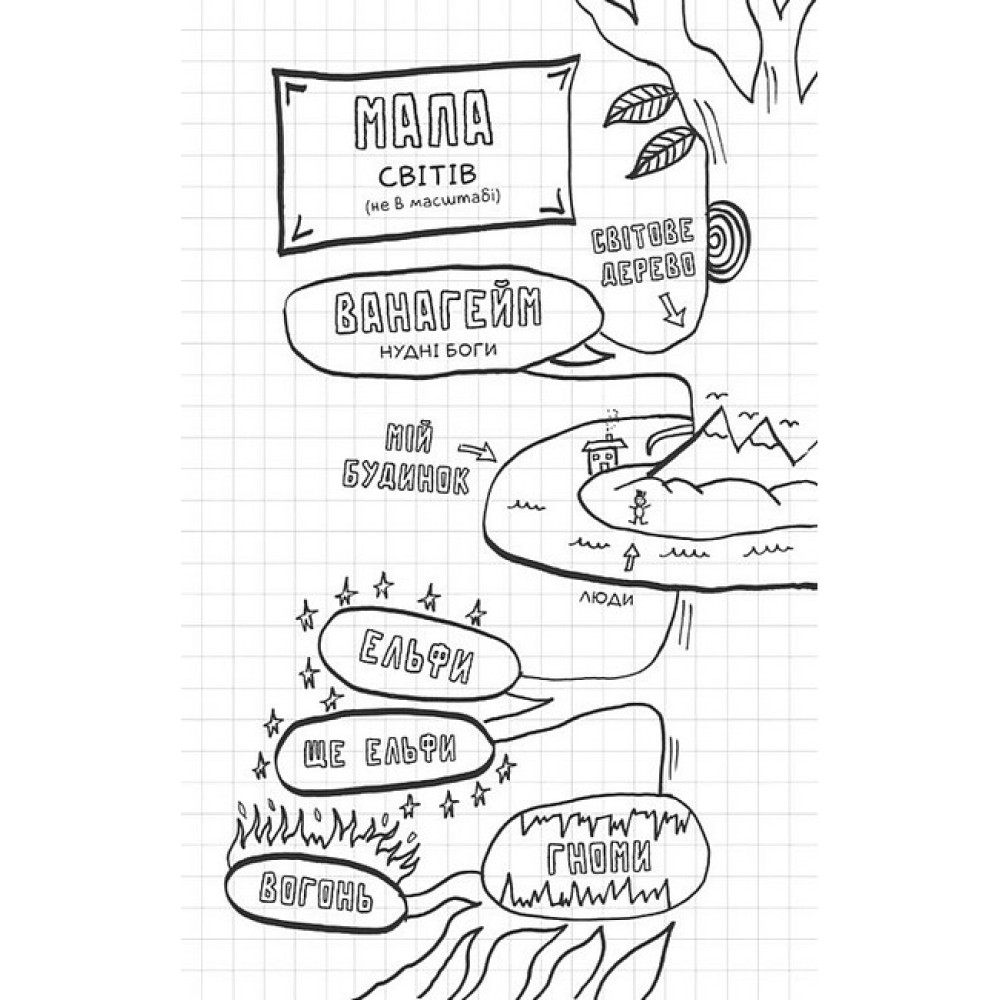 МАПА
СВІТІВ
(не в масштабі)
СВІТОВЕ
ДЕРЕВО
ВАНАГЕЙМ
НУДНІ БОГИ
МІЙ
БУДИНОК
ЛЮДИ
ЕЛЬФИ
ЩЕ ЕЛЬФИ
ГНОМИ
ВОГОНЬ